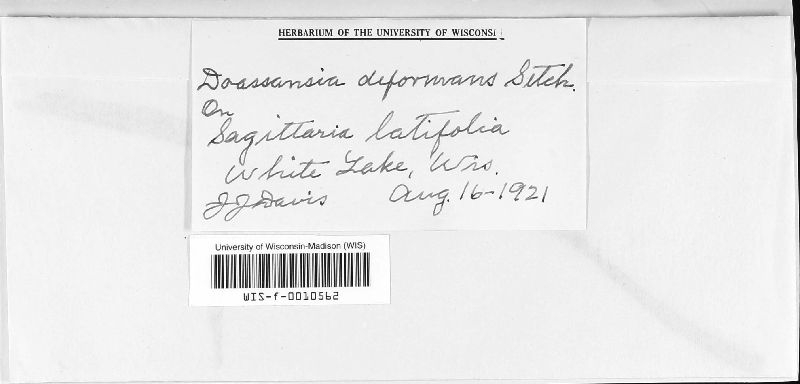 HERBARIUM OF THE UNIVERSITY OF WISCONSI
Doassansia deformans Setch.
On
Sagittaria latifolia
White Lake, Wis.
JJ Davis Aug. 16-1921
University of Wisconsin-Madison (WIS)
WIS-f-0010562